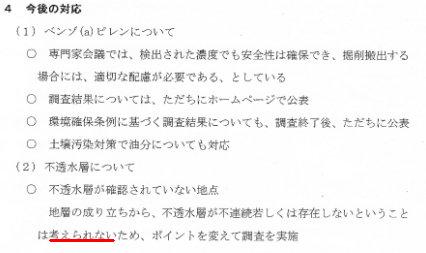 4 今後の対応
(1) ベンゾ(a)ピレンについて
○ 専門家会議では、検出された濃度でも安全性は確保でき、掘削搬出する
場合には、適切な配慮が必要である、としている
○ 調査結果については、ただちにホームページで公表
○ 環境確保条例に基づく調査結果についても、調査終了後、ただちに公表
○ 土壌汚染対策で油分についても対応
(2) 不透水層について
○ 不透水層が確認されていない地点
地層の成り立ちから、不透水層が不連続若しくは存在しないということ
は考えられないため、ポイントを変えて調査を実施